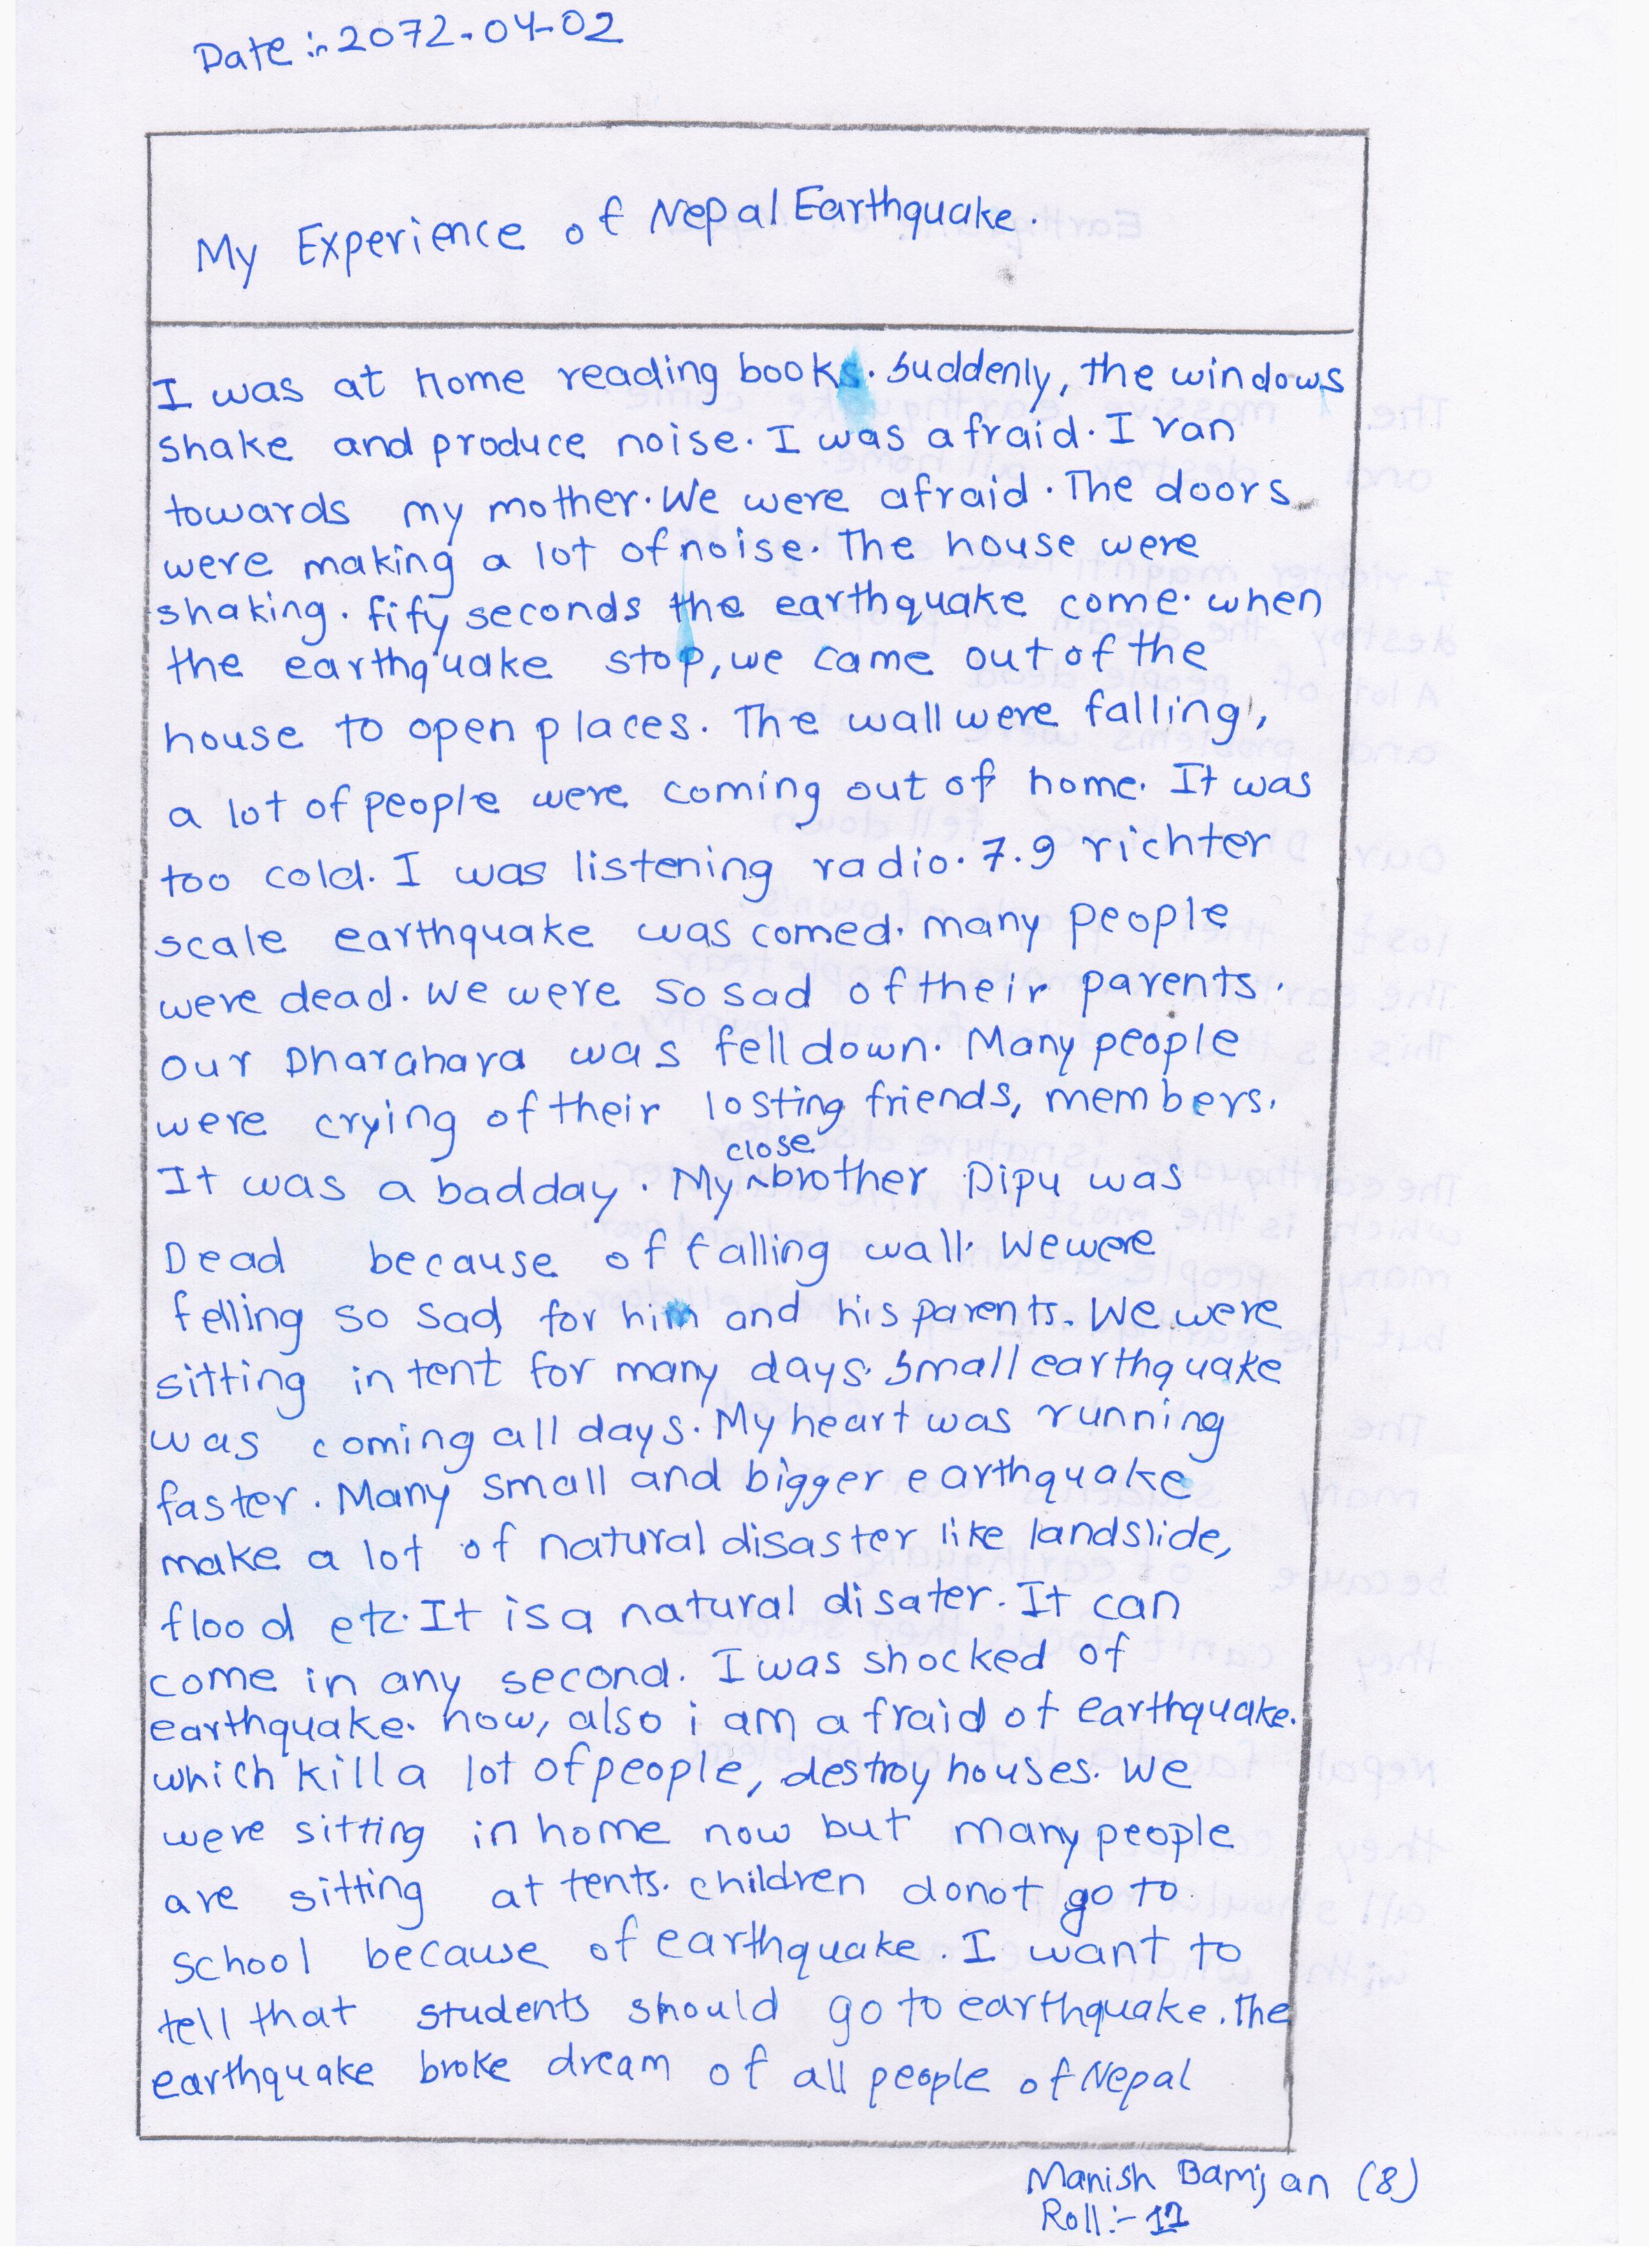 Date :- 2072-04-02
My Experience of Nepal Earthquake.
I was at home reading books. Suddenly, the windows
shake and produce noise. I was afraid. I ran
towards my mother. We were afraid. The doors
were making a lot of noise. The house were
shaking. fify seconds the earthquake come. when
the earthquake stop, we came out of the
house to open places. The wall were falling,
a lot of people were coming out of home. It was
too cold. I was listening radio. 7.9 richter
scale earthquake was comed. many people
were dead. we were so sad of their parents.
our Dharahara was fell down. Many people
were crying of their losting friends, members.
close
It was a bad day. My ^ brother Dipu was
Dead because of falling wall. We were
felling so sad for him and his parents. We were
sitting in tent for many days. Small earthquake
was coming all days. My heart was running
faster. Many small and bigger earthquake
make a lot of natural disaster like landslide,
flood etc. It is a natural disater. It can
come in any second. I was shocked of
earthquake. now, also i am afraid of earthquake.
which kill a lot of people, destroy houses. We
were sitting in home now but many people
are sitting at tents. children donot go to
school because of earthquake. I want to
tell that students should go to earthquake. The
earthquake broke dream of all people of Nepal
Manish Bamjan (8)
Roll :-